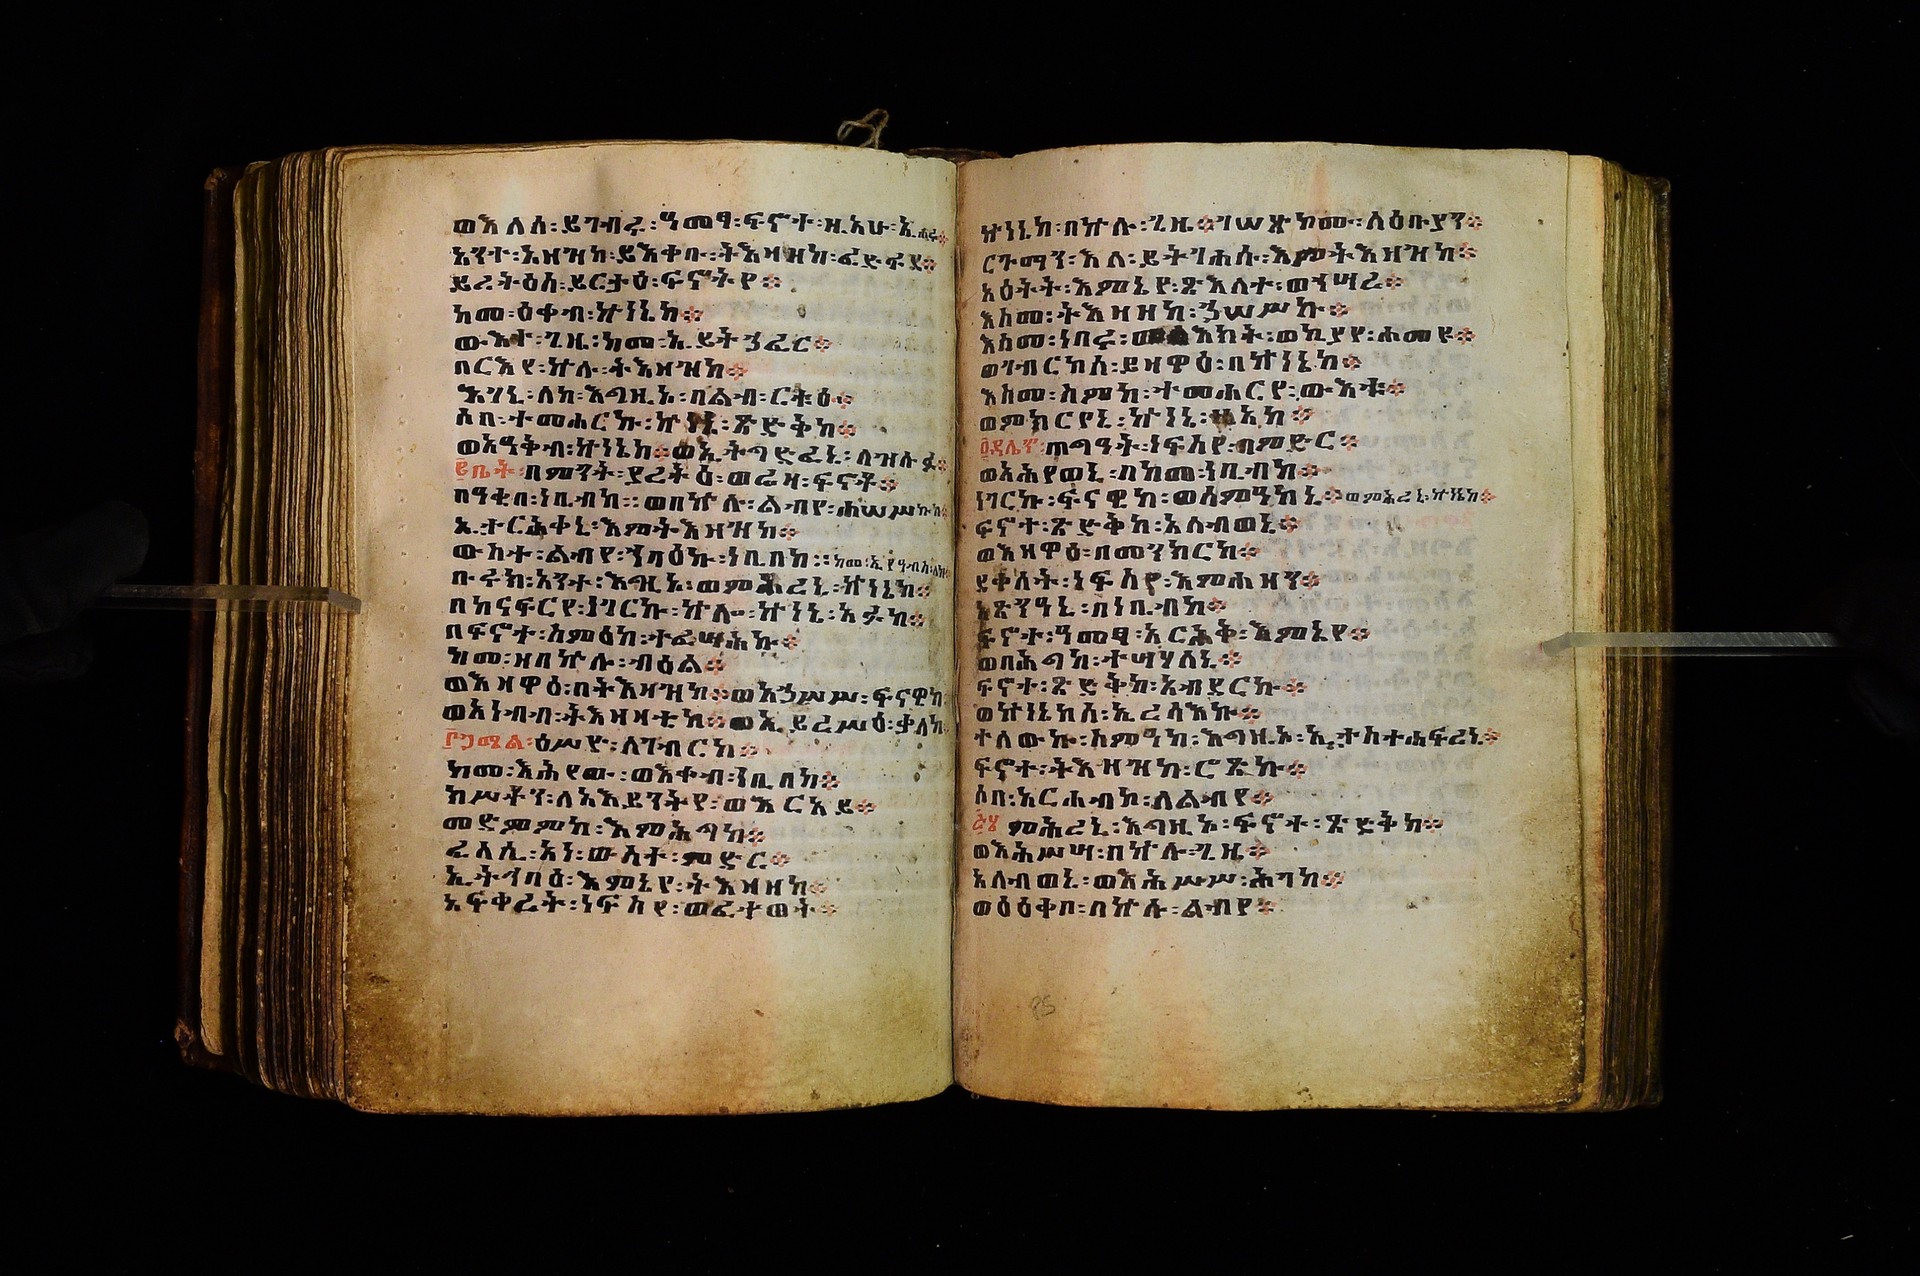 ወእለሰ፡ይገብሩ፡ዓመፃ፡ፍኖተ፡ዚአሁ፡ኢሖሩ።
አንተ፡አዘዝከ፡ይእቀቡ፡ትእዛዝከ፡ፈድፋደ።
ይረትዕሰ፡ይርታዕ፡ፍኖትየ።
ከመ፡ዕቀብ፡ኵነኔከ።
ውእተ፡ጊዜ፡ከመ፡ኢይትኀፈር።
በርእየ፡ኵሉ፡ትእዛዝከ።
እገኒ፡ለከ፡እግዚኦ፡በልብ፡ርቱዕ።
ሶበ፡ተመሐርኩ፡ኵነኔ፡ጽድቅከ።
ወእዓቅብ፡ኵነኔከ።ወኢትግድፈኒ፡ለዝሉፉ።
፪ቤት፡በምንት፡ያረትዕ፡ወሬዛ፡ፍኖቶ።
በዓቂበ፡ነቢብከ።ወበኵሉ፡ልብየ፡ሐሠሥኩከ።
ኢታርሕቀኒ፡እምትእዛዝከ።
ውስተ፡ልብየ፡ኀባዕኩ፡ነቢበከ።ከመ፡ኢየዓብስ፡ለከ።
ቡሩክ፡አንተ፡እግዚኦ፡ወምሕረኒ፡ኵነኔከ።
በከናፍርየ፡ነገርኩ፡ኵሎ፡ኵነኔ፡አፉከ።
በፍኖተ፡ስምዕከ፡ተፈሣሕኩ።
ከመ፡ዘበኵሉ፡ብዕል።
ወእዛዋዕ፡በትእዛዝከ።ወእኃሥሥ፡ፍናዊከ
ወአነብብ፡ትእዛዛቲከ።ወኢይረሥዕ፡ቃለከ
፫ጋሜል፡ዕሥዮ፡ለገብርከ።
ከመ፡እሕየው፡ወእቀብ፡ነቢበከ።
ክሥቶን፡ለአእይንትየ፡ወእርአይ።
መድምምከ፡እምሕግከ።
ፈላሲ፡አነ፡ውስተ፡ምድር።
ኢትኅባዕ፡እምኔየ፡ትእዛዘከ።
አፍቀረት፡ነፍስየ፡ወፈተወት።
ኵነኔከ፡በኵሉ፡ጊዜ።ገሠጽኮሙ፡ለዕቡያን።
ርጉማን፡እለ፡ይትገሐሱ፡እምትእዛዝከ።
አዕትት፡እምኔየ፡ጽእለተ፡ወኀሣረ።
እስመ፡ትእዛዘከ፡ኀሠሥኩ።
እስመ፡ነበሩ፡መላእክት፡ወኪያየ፡ሐመዩ።
ወገብርከሰ፡ይዛዋዕ፡በኵነኔከ።
እስመ፡ስምከ፡ተመሐርየ፡ውእቱ።
ወምክርየኒ፡ኵነኔ፡ዚአከ።
፬ዳሌጥ፡ጠግዓት፡ነፍስየ፡ብምድር።
ወአሕየወኒ፡በከመ፡ነቢብከ።
ነገርኩ፡ፍናዊከ፡ወሰምዓከኒ።ወምሕረኒ፡ኵነኔከ።
ፍኖተ፡ጽድቅከ፡አለብወኒ።
ወእዛዋዕ፡በመንክርከ።
ደቀሰት፡ነፍስየ፡እምሐዘን።
አጽንዓኒ፡በነቢብከ።
ፍኖተ፡ዓመፃ፡አርሕቅ፡እምኔየ።
ወበሕግከ፡ተሣሃለኒ።
ፍኖተ፡ጽድቅከ፡አብደርኩ።
ወኵነኔከሰ፡ኢረሳእኩ።
ተለውኩ፡ስምዓከ፡እግዚኦ፡ኢታስተሐፍረኒ።
ፍኖተ፡ትእዛዝከ፡ሮጽኩ።
ሶበ፡አርሐብከ፡ለልብየ።
ምሕረኒ፡እግዚኦ፡ፍኖተ፡ጽድቅከ።
ወእሕሥሣ፡በኵሉ፡ጊዜ።
አለብወኒ፡ወእሕሥሥ፡ሕገከ።
ወዕዕቀቦ፡በኵሉ፡ልብየ።
85